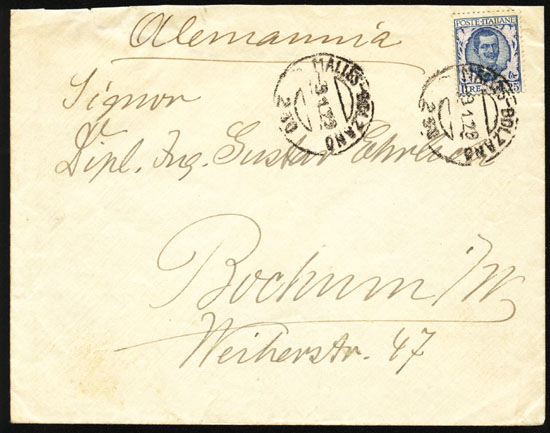 Alemannia
POSTE ITALIANE
LIRE 1,25
MALLES-BOLZANO
9.1.29
MALLES-BOLZANO
9.1.29
Signor
Dipl. Ing. Gustav
Bochum i/W
Weiherstr. 47